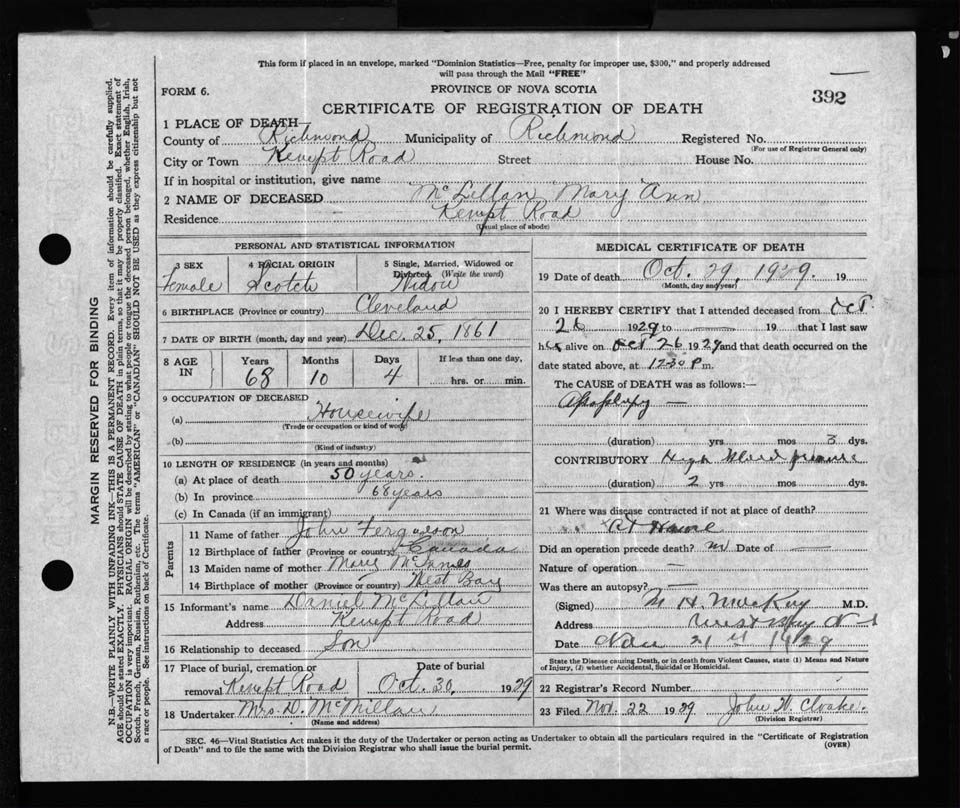 This form if placed in an envelope, marked "Dominion Statistics—Free, penalty for improper use, $300," and properly addressed
will pass through the Mail "FREE"
FORM 6.
PROVINCE OF NOVA SCOTIA
392
CERTIFICATE OF REGISTRATION OF DEATH
1 PLACE OF DEATH—
County of Richmond Municipality of Richmond Registered No.
(For use of Registrar General only)
City or Town Kempt Road Street House No.
If in hospital or institution, give name
2 NAME OF DECEASED McLellan Mary Ann
Residence Kempt Road
(Usual place of abode)
PERSONAL AND STATISTICAL INFORMATION
3 SEX 4 RACIAL ORIGIN 5 Single, Married, Widowed or Divorced (Write the word)
Female Scotch Widow
6 BIRTHPLACE (Province or country) Cleveland
7 DATE OF BIRTH (month, day and year) Dec. 25, 1861
8 AGE IN Years Months Days If less than one day,
68 10 4 hrs. or min.
9 OCCUPATION OF DECEASED
(a) Housewife
(Trade or occupation or kind of work)
(b)
(Kind of industry)
10 LENGTH OF RESIDENCE (in years and months)
(a) At place of death 50 years.
(b) In province 68 years
(c) In Canada (if an immigrant)
Parents
11 Name of father John Ferguson
12 Birthplace of father (Province or country) Canada
13 Maiden name of mother Mary McInnes
14 Birthplace of mother (Province or country) West Bay
15 Informant's name Daniel McLellan
Address Kempt Road
16 Relationship to deceased Son
17 Place of burial, cremation or Date of burial
removal Kempt Road Oct. 30, 1929
18 Undertaker Mrs. D. McMillan
(Name and address)
MEDICAL CERTIFICATE OF DEATH
19 Date of death Oct. 29, 1929. 19
(Month, day and year)
20 I HEREBY CERTIFY that I attended deceased from Oct
26 1929 to — 19 that I last saw
her alive on Oct 26 1929 and that death occurred on the
date stated above, at 12-30 P m.
The CAUSE of DEATH was as follows:—
Apoplexy —
(duration) yrs mos 3 dys.
CONTRIBUTORY High blood pressure
(duration) 2 yrs mos dys.
21 Where was disease contracted if not at place of death?
At Home
Did an operation precede death? no Date of —
Nature of operation —
Was there an autopsy? —
(Signed) MacKay M.D.
Address West Bay N S
Date Nov 21st 1929
State the Disease causing Death, or in death from Violent Causes, state (1) Means and Nature
of Injury, (2) whether Accidental, Suicidal or Homicidal.
22 Registrar's Record Number
23 Filed Nov. 22 1929 John W. Cloake.
(Division Registrar)
SEC. 46—Vital Statistics Act makes it the duty of the Undertaker or person acting as Undertaker to obtain all the particulars required in the "Certificate of Registration
of Death" and to file the same with the Division Registrar who shall issue the burial permit.
(OVER)
MARGIN RESERVED FOR BINDING
N.B.—WRITE PLAINLY WITH UNFADING INK—THIS IS A PERMANENT RECORD. Every item of information should be carefully supplied.
AGE should be stated EXACTLY. PHYSICIANS should STATE CAUSE OF DEATH in plain terms, so that it may be properly classified. Exact statement of
OCCUPATION is very important. RACIAL ORIGIN will be described by stating to what people or tongue the deceased person belonged, whether English, Irish,
Scotch, French, German, Russian, Ruthenian, etc. The terms "AMERICAN" or "CANADIAN" SHOULD NOT BE USED as they express citizenship but not
a race or people. See instructions on back of Certificate.